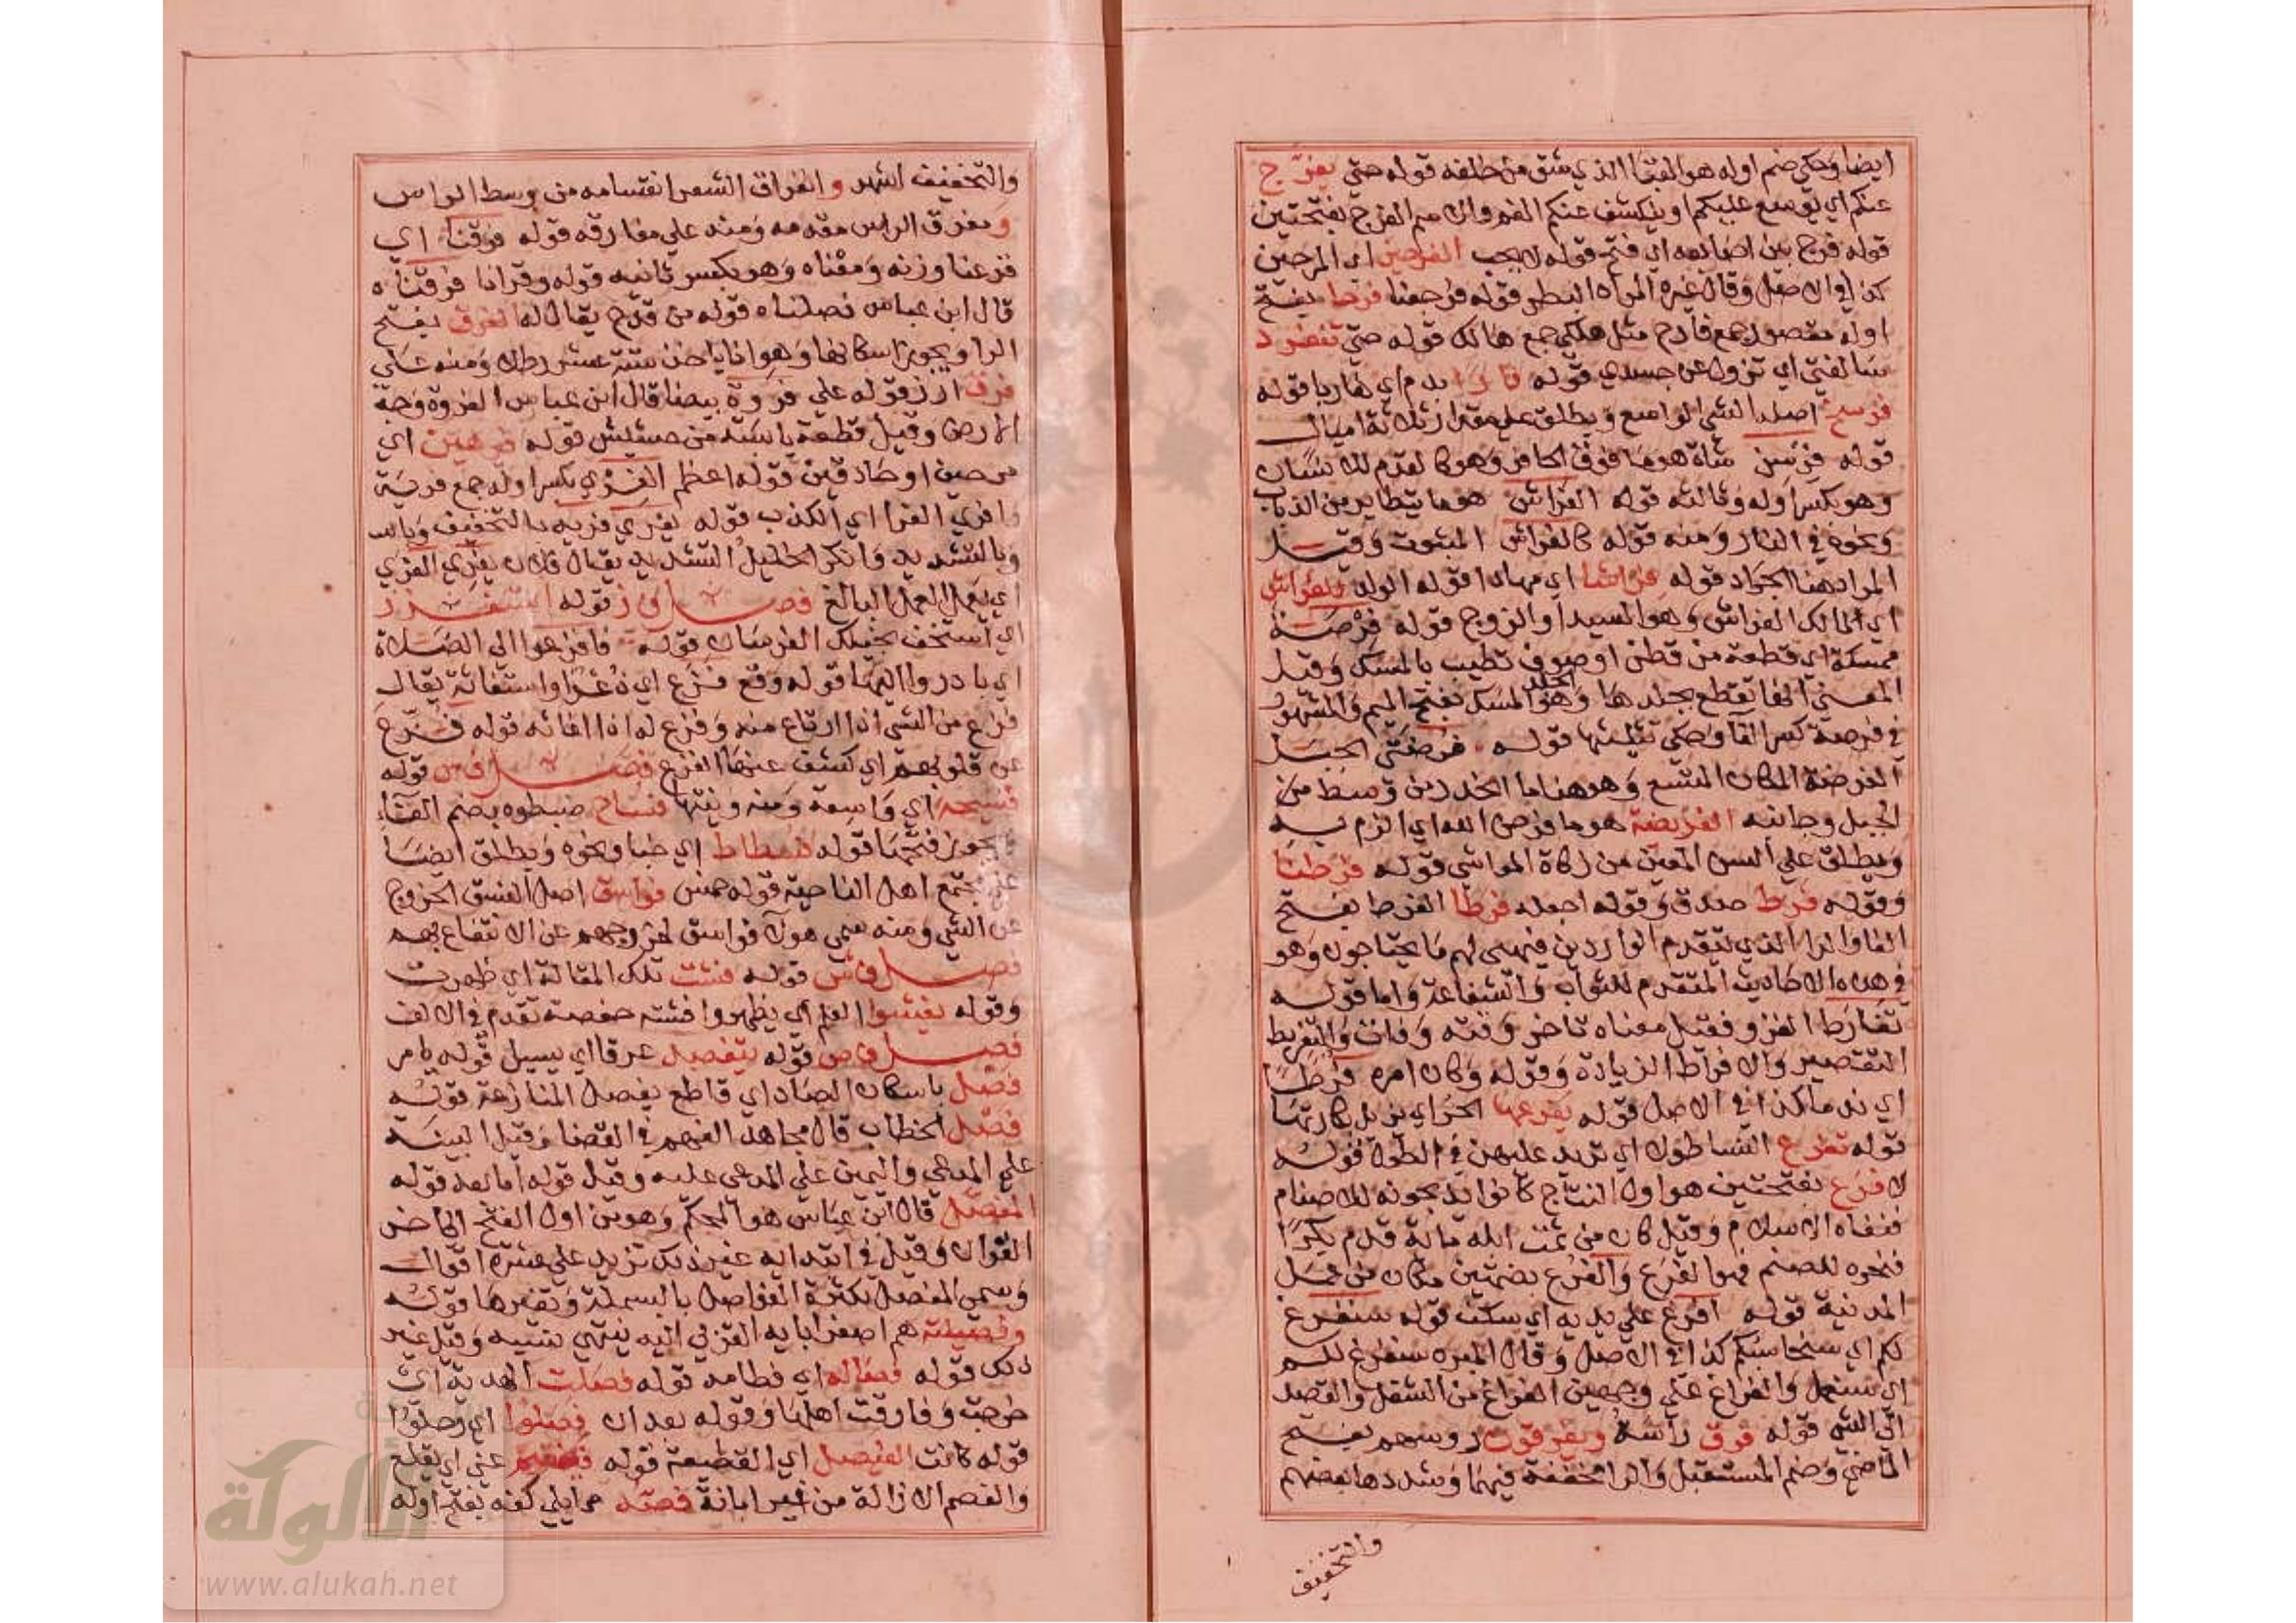 ايضا وحكي ضم اوله هو القبا الذي شق من خلفه قوله حتى يفرج
عنكم اي يوسع عليكم او ينكشف عنكم الغم والاسم الفرج بفتحتين
قوله فرج بين اصابعه اي فتح قوله لا يحب الفرحين اي المرحين
كذا في الاصل وقال غيره المراد البطر قوله فرجعنا فرحا بفتح
اوله مقصور جمع فارح مثل هلكي جمع هالك قوله حتى تنفرد
سالفتي اي تزول عن جسدي قوله فارا بدم اي هاربا قوله
فرسخ اصله الشي الواسع ويطلق على مقدار ثلاثة اميال
قوله فرسن شاة هو ما فوق الحافر وهو كالقدم للانسان
وهو بكسر اوله وثالثه قوله الفراش هو ما يتطاير من الذباب
ونحوه في النار ومنه قوله كالفراش المبثوث وقيل
المراد هنا الجراد قوله فراشا اي مهادا قوله الولد للفراش
اي لمالك الفراش وهو السيد او الزوج قوله فرصة
ممسكة اي قطعة من قطن او صوف تطيب بالمسك وقيل
المعنى انها تقطع بجلدها وهو الجلد المسك بفتح الميم والمشهور
في فرصة كسر الفا وحكي تثليثها قوله فرضتي الجبل
الفرضة المكان المتسع وهو هنا ما انحدر من وسط من
الجبل وجانبه الفريضة هو ما فرض الله اي الزم به
ويطلق على السن المعين من زكاة المواشي قوله فرطنا
وقوله فرط صدق وقوله اجعله فرطا الفرط بفتح
الفا والرا الذي يتقدم الواردين فيهيي لهم ما يحتاجون وهو
في هذه الاحاديث المتقدم للثواب والشفاعة واما قوله
تفارط الغزو فقيل معناه تاخر وقته وفات والتفريط
التقصير والافراط الزيادة وقوله وكان امره فرطا
اي ندما كذا في الاصل قوله يفرعها الحراي يزيل بكارتها
قوله تفرع النسا طولا اي تزيد عليهن في الطول قوله
لا فرع بفتحتين هو اول النتاج كانوا يذبحونه للاصنام
فنفاه الاسلام وقيل كان من تمت ابله مائة قدم بكرا
فنحره للصنم فهو الفرع والفرع بضمتين مكان من عمل
المدنية قوله افرغ على يديه اي سكب قوله سنفرغ
لكم اي سنحاسبكم كذا في الاصل وقال غيره سنفرغ لكم
اي سنعمل والفراغ على وجهين الفراغ من الشغل والقصد
الى الشي قوله فرق راسه ويفرقون روسهم بفتح
الماضي وضم المستقبل والرا مخففة فيهما وشددها بعضهم
والتخفيف
والتخفيف اشهر وانفراق الشعر انقسامه من وسط الراس
ومفرق الراس مقدمه ومنه على مفارقه قوله فرقنا اي
فزعنا وزنه ومعناه وهو بكسر ثانيه قوله وقرانا فرقناه
قال ابن عباس فصلناه قوله من قدح يقال له الفرق بفتح
الرا ويجوز اسكانها وهو انا ياخذ ستة عشر رطلا ومنه على
فرق ارز قوله على فروة بيضا قال ابن عباس الفروة وجه
الارض وقيل قطعة يابسة من حشيش قوله فرهين اي
مرحين او حاذقين قوله اعظم الفري بكسر اوله جمع فرية
وافري الفرا اي الكذب قوله يفري فريه بالتخفيف وباس
وبالتشديد وانكر الخليل التشديد يقال فلان يفري الفري
اي يعمل العمل البالغ فصل ف ز قوله استفزز
اي استخف بخيلك الفرسان قوله فافزعوا الى الصلاة
اي بادروا اليها قوله وقع فزع اي ذعرا واستغاثة يقال
فزع من الشي اذا ارتاع منه وفزع له اذا اغاثه قوله فزع
عن قلوبهم اي كشف عنها الفزع فصل ف س قوله
فسيحة اي واسعة ومنه وبيتها فساح ضبطوه بضم الفاء
ويجوز فتحها قوله فسطاط اي خبا ونحوه ويطلق ايضا
على مجتمع اهل الناحية قوله خمس فواسق اصل الفسق الخروج
عن الشي ومنه سمي هولا فواسق لخروجهم عن الانتفاع بهم
فصل ف ش قوله فشت تلك المقالة اي ظهرت
وقوله يفشوا العلم اي يظهر وافشته حفصة تقدم في الالف
فصل ف ص قوله يتفصد عرقا اي يسيل قوله بامر
فصل باسكان الصاد اي قاطع يفصل المنازعة قوله
فصل الخطاب قال مجاهد الفهم في القضا وقيل البينة
على المدعي واليمين على المدعى عليه وقيل قوله اما بعد قوله
المفصل قال ابن عباس هو المحكم وهو من اول الفتح الى اخر
القران وقيل في ابتدايه غير ذلك تزيد على عشرة اقوال
وسمي المفصل لكثرة الفواصل بالبسملة وبغيرها قوله
وفصيلته هم اصغر ابايه القربى اليه ينتهي نسبه وقيل غير
ذلك قوله فصاله اي فطامه قوله فصلت الهدية اي
خرجت وفارقت اهلها وقوله بعد ان فصلوا اي رحلوا
قوله كانت الفيصل اي القطيعة قوله فيفصم عني اي يقلع
والفصم الازالة من غير ابانة فصه مما يلي كفه بفتح اوله
الألوكة
www.alukah.net